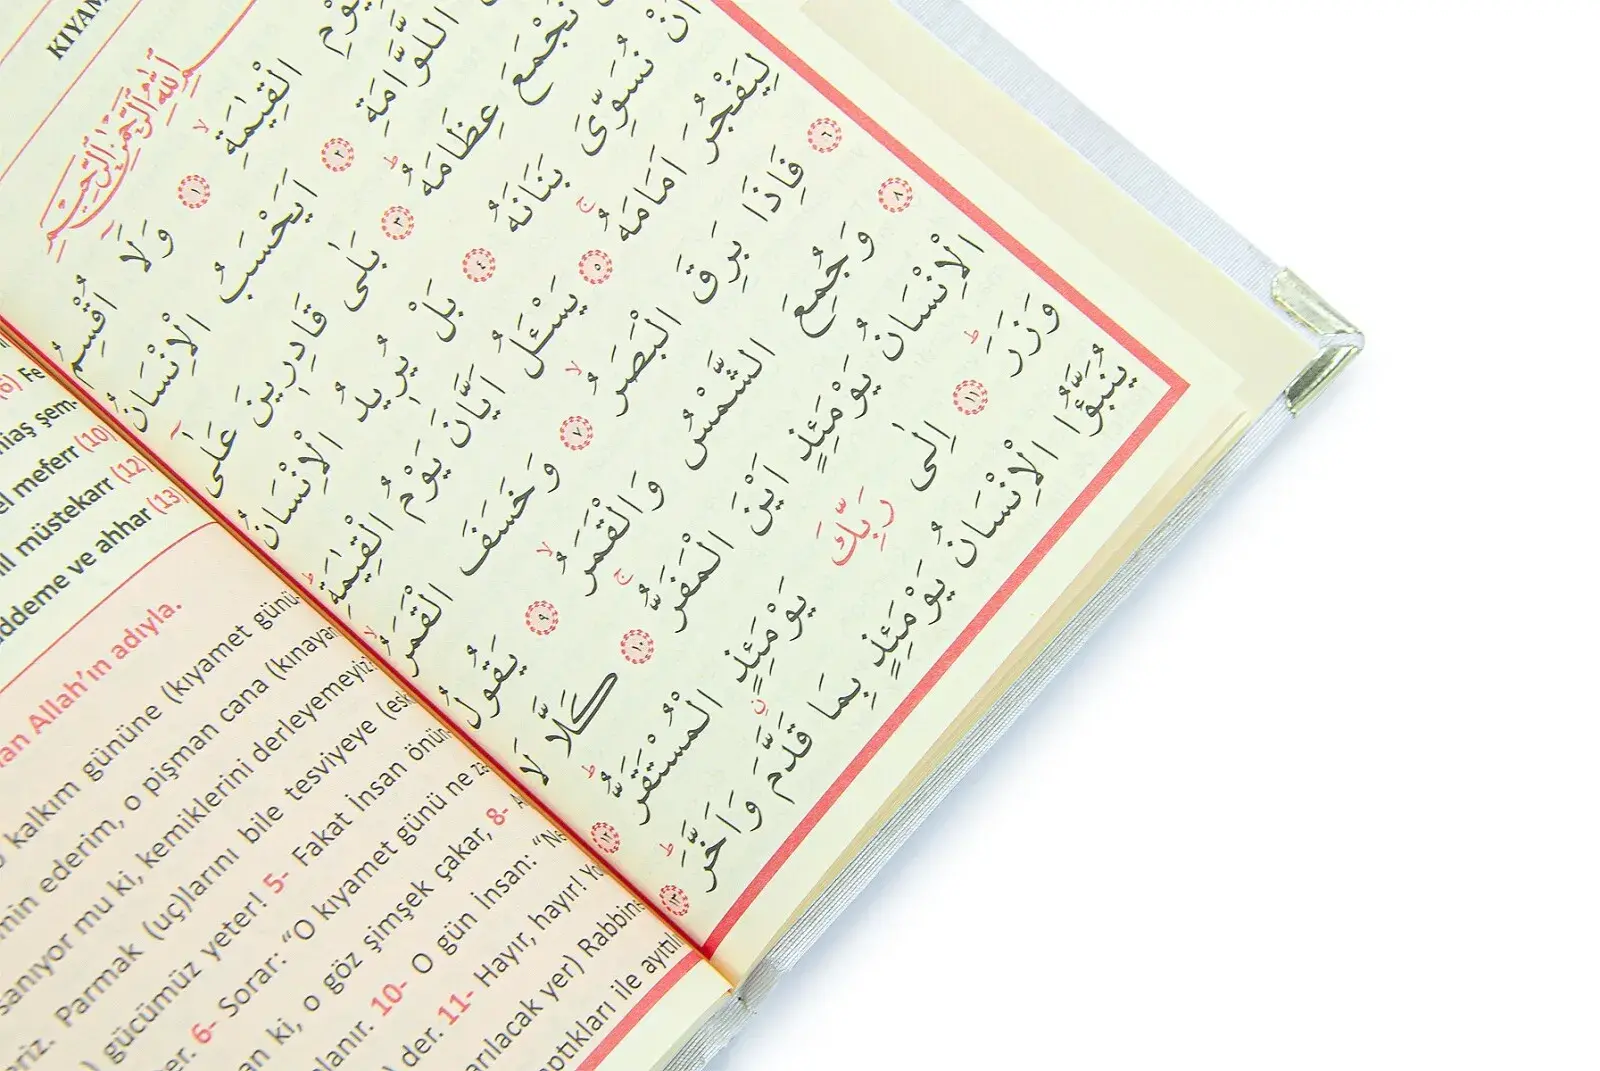 اللهِ الرَّحْمٰنِ الرَّحِيمِ
يَوْمِ الْقِيٰمَةِۙ ﴿١﴾ وَلَٓا اُقْسِمُ
اللَّوَّامَةِ ﴿٢﴾ اَيَحْسَبُ الْاِنْسَانُ
نَجْمَعَ عِظَامَهُۜ ﴿٣﴾ بَلٰى قَادِرِينَ عَلٰٓى
اَنْ نُسَوِّىَ بَنَانَهُ ﴿٤﴾ بَلْ يُرِيدُ الْاِنْسَانُ
لِيَفْجُرَ اَمَامَهُۚ ﴿٥﴾ يَسْـَٔلُ اَيَّانَ يَوْمُ الْقِيٰمَةِۜ
﴿٦﴾ فَاِذَا بَرِقَ الْبَصَرُۙ ﴿٧﴾ وَخَسَفَ الْقَمَرُۙ
﴿٨﴾ وَجُمِعَ الشَّمْسُ وَالْقَمَرُۙ ﴿٩﴾ يَقُولُ
الْاِنْسَانُ يَوْمَئِذٍ اَيْنَ الْمَفَرُّۚ ﴿١٠﴾ كَلَّا لَا
وَزَرَۜ ﴿١١﴾ اِلٰى رَبِّكَ يَوْمَئِذٍۨ الْمُسْتَقَرُّۜ ﴿١٢﴾
يُنَبَّؤُا الْاِنْسَانُ يَوْمَئِذٍ بِمَا قَدَّمَ وَاَخَّرَۜ ﴿١٣﴾
(6) Fe
şem-
el meferr (10)
müstekarr (12)
ve ahhar (13)
Allah'ın adıyla.
kalkım gününe (kıyamet günü-
ederim, o pişman cana (kınayan
mu ki, kemiklerini derleyemeyiz
Parmak (uç)larını bile tesviyeye
gücümüz yeter! 5- Fakat İnsan
6- Sorar: “O kıyamet günü ne
ki, o göz şimşek çakar, 8-
10- O gün İnsan:
der. 11- Hayır, hayır!
yer)
ile